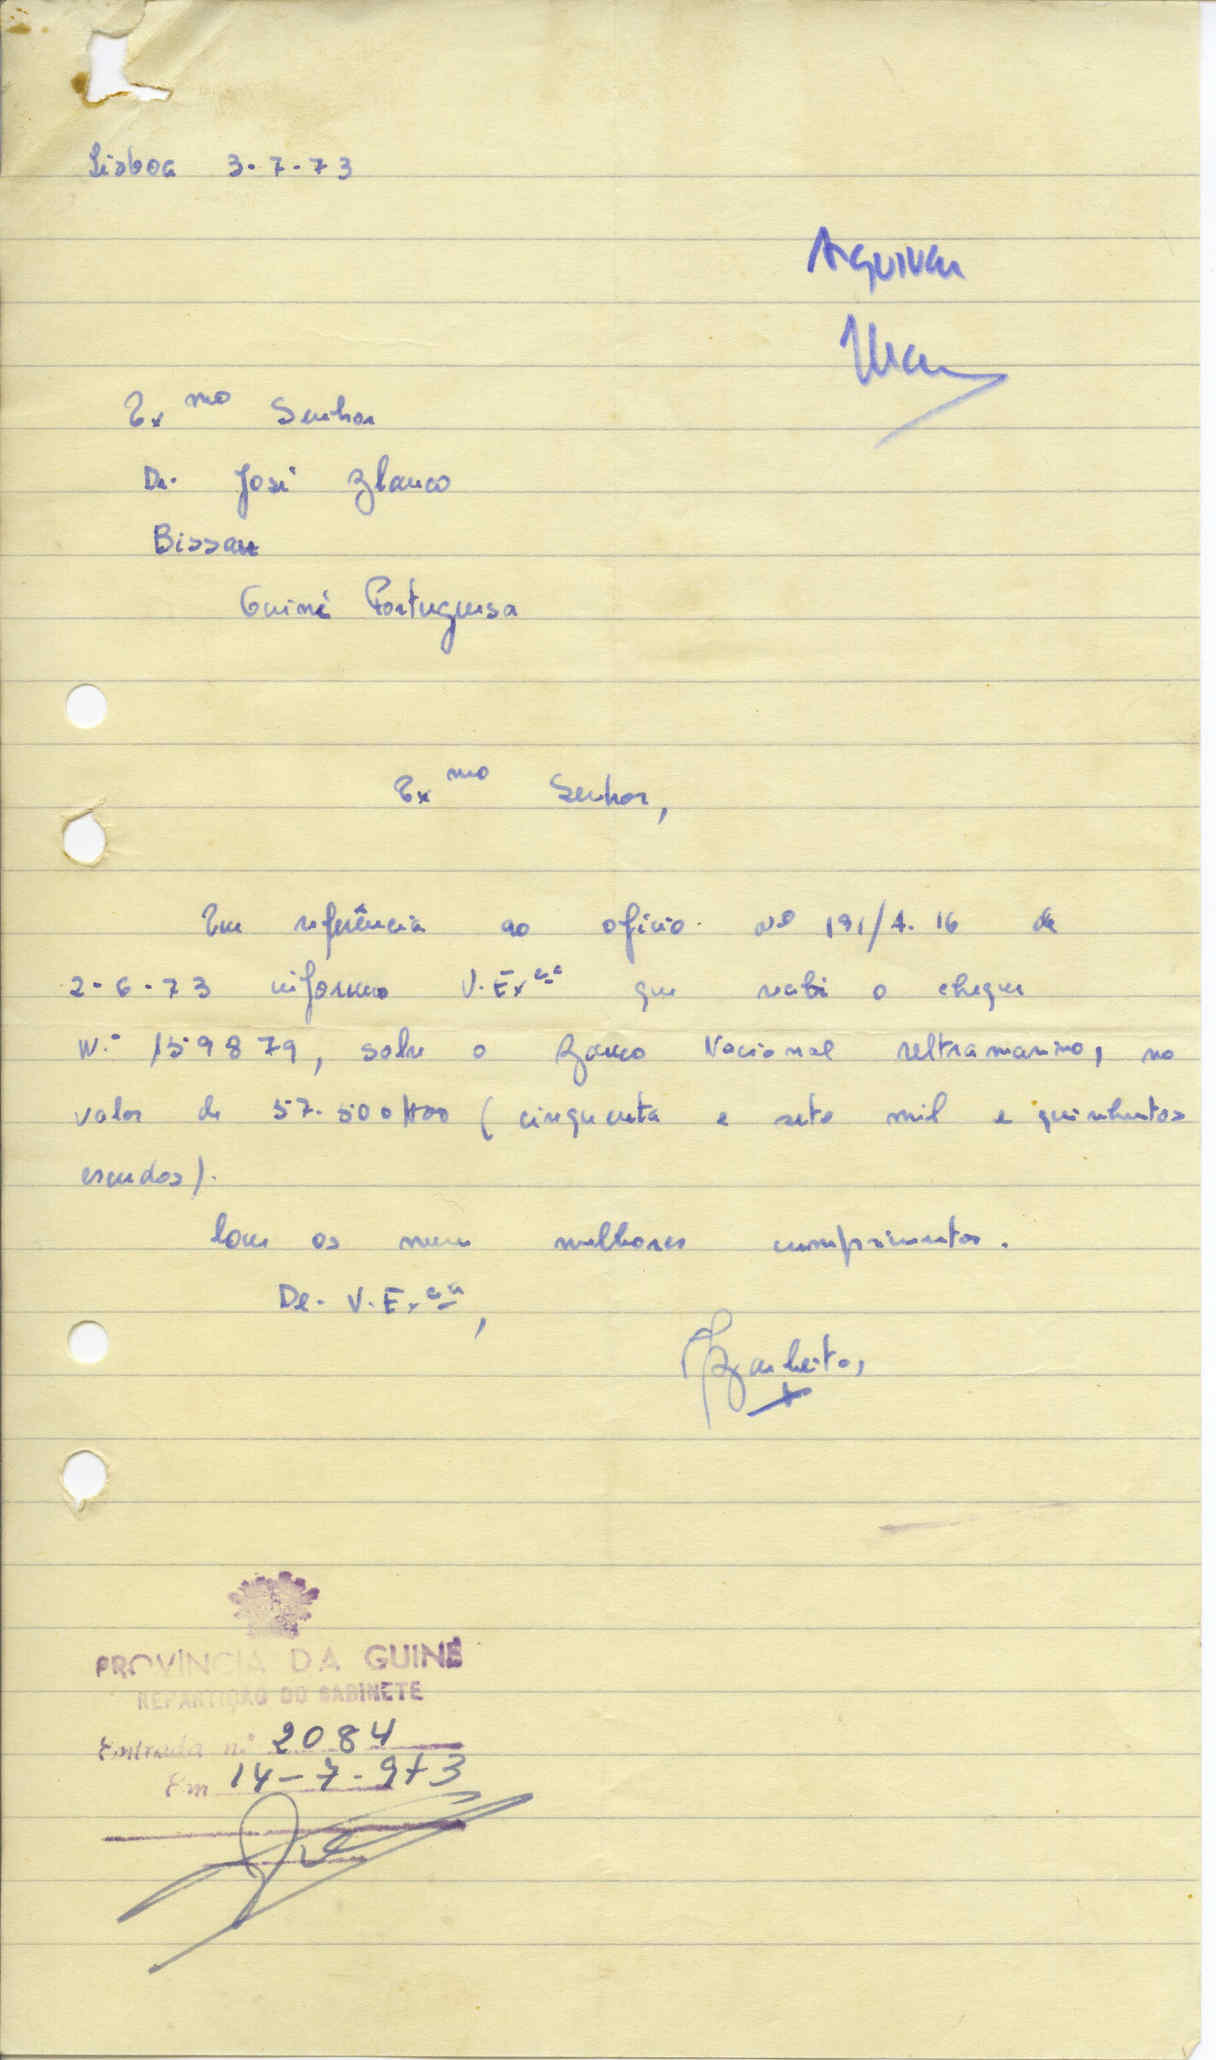 Lisboa 3-7-73
Arquivar
Exmo Senhor
Dr. José Blanco
Bissau
Guiné Portuguesa
Exmo Senhor,
Em referência ao ofício nº 191/A.16 de
2-6-73 informo V. Excia que recebi o cheque
N.º 159879, sobre o Banco Nacional Ultramarino, no
valor de 57.500$00 (cinquenta e sete mil e quinhentos
escudos).
Com os meus melhores cumprimentos.
De. V. Excia,
PROVÍNCIA DA GUINÉ
REPARTIÇÃO DO GABINETE
Entrada n.º 2084
Em 14-7-973